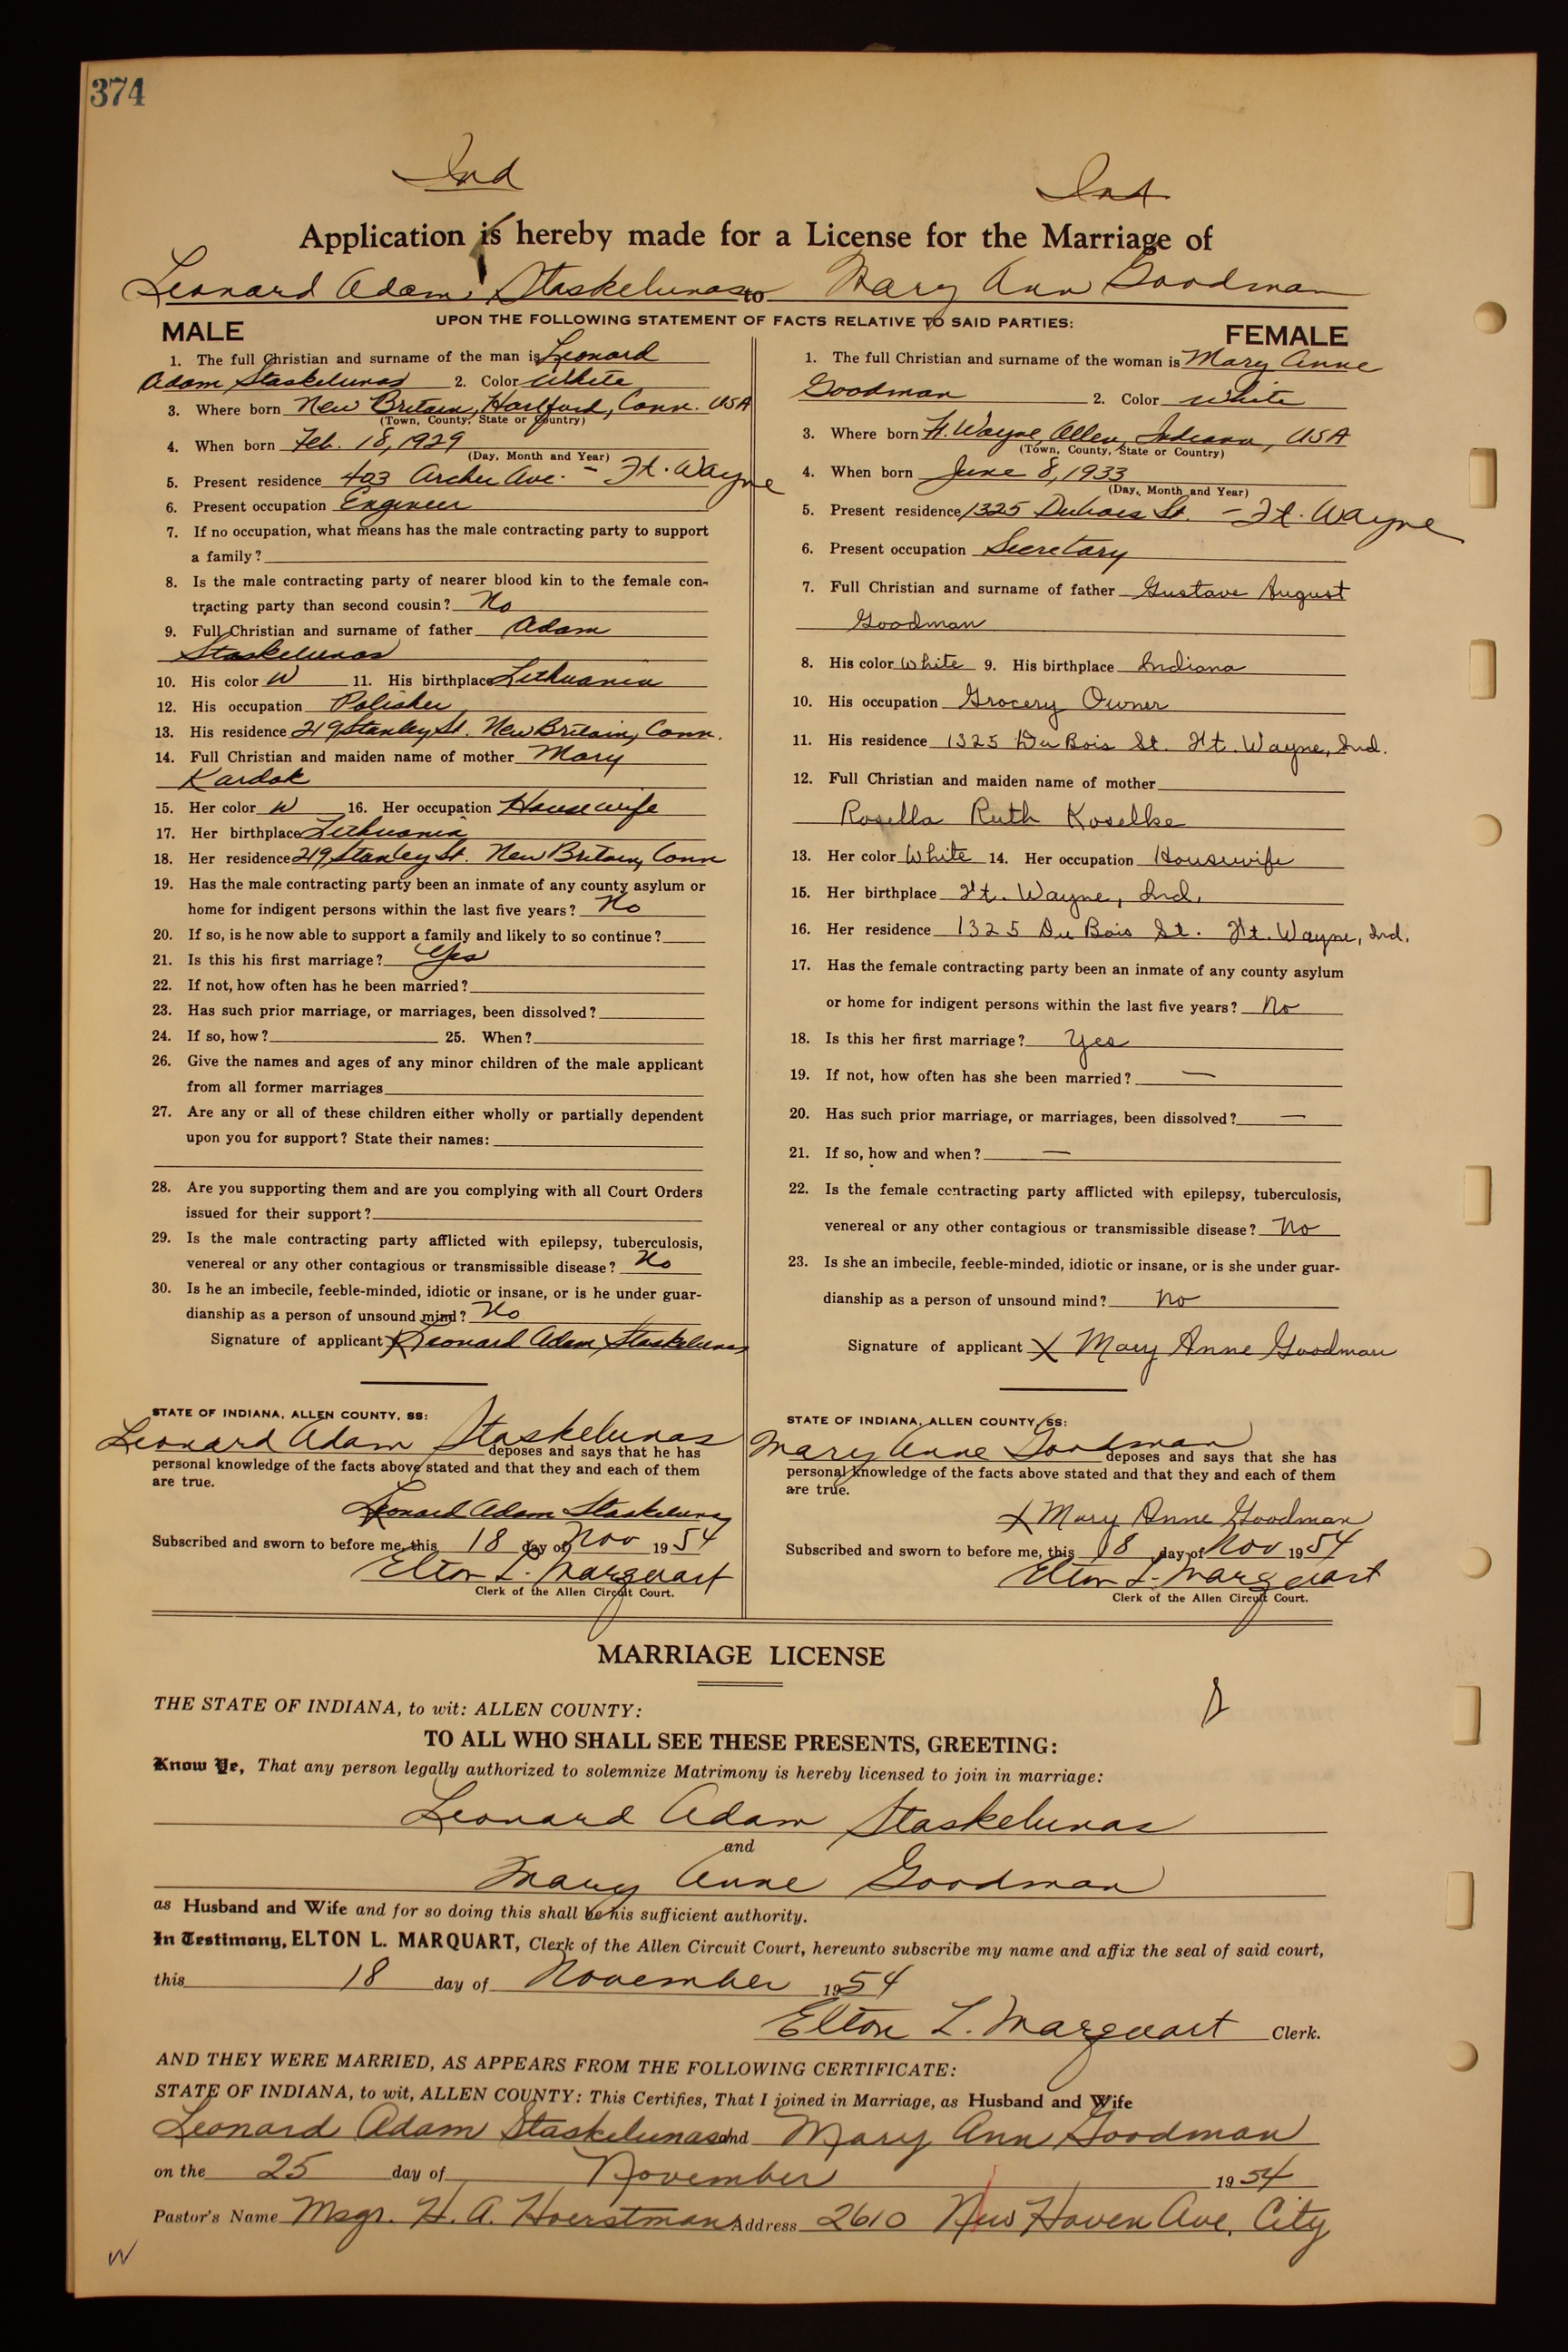 374
Ind Ind
Application is hereby made for a License for the Marriage of
Leonard Adam Staskelunas to Mary Ann Goodman
UPON THE FOLLOWING STATEMENT OF FACTS RELATIVE TO SAID PARTIES:
MALE
1. The full Christian and surname of the man is Leonard
Adam Staskelunas 2. Color White
3. Where born New Britain, Hartford, Conn. USA
(Town, County, State or Country)
4. When born Feb. 18, 1929
(Day, Month and Year)
5. Present residence 403 Archer Ave. - Ft. Wayne
6. Present occupation Engineer
7. If no occupation, what means has the male contracting party to support
a family?
8. Is the male contracting party of nearer blood kin to the female con-
tracting party than second cousin? No
9. Full Christian and surname of father Adam
Staskelunas
10. His color W 11. His birthplace Lithuania
12. His occupation Polisher
13. His residence 219 Stanley St. New Britain, Conn.
14. Full Christian and maiden name of mother Mary
Kardok
15. Her color W 16. Her occupation Housewife
17. Her birthplace Lithuania
18. Her residence 219 Stanley St. New Britain, Conn
19. Has the male contracting party been an inmate of any county asylum or
home for indigent persons within the last five years? No
20. If so, is he now able to support a family and likely to so continue?
21. Is this his first marriage? Yes
22. If not, how often has he been married?
23. Has such prior marriage, or marriages, been dissolved?
24. If so, how? 25. When?
26. Give the names and ages of any minor children of the male applicant
from all former marriages
27. Are any or all of these children either wholly or partially dependent
upon you for support? State their names:
28. Are you supporting them and are you complying with all Court Orders
issued for their support?
29. Is the male contracting party afflicted with epilepsy, tuberculosis,
venereal or any other contagious or transmissible disease? No
30. Is he an imbecile, feeble-minded, idiotic or insane, or is he under guar-
dianship as a person of unsound mind? No
Signature of applicant X Leonard Adam Staskelunas
STATE OF INDIANA, ALLEN COUNTY, SS:
Leonard Adam Staskelunas
deposes and says that he has
personal knowledge of the facts above stated and that they and each of them
are true.
Leonard Adam Staskelunas
Subscribed and sworn to before me, this 18 day of Nov 1954
Elton L. Marquart
Clerk of the Allen Circuit Court.
FEMALE
1. The full Christian and surname of the woman is Mary Anne
Goodman 2. Color White
3. Where born Ft. Wayne, Allen, Indiana, USA
(Town, County, State or Country)
4. When born June 8, 1933
(Day, Month and Year)
5. Present residence 1325 Dubois St. - Ft. Wayne
6. Present occupation Secretary
7. Full Christian and surname of father Gustave August
Goodman
8. His color White 9. His birthplace Indiana
10. His occupation Grocery Owner
11. His residence 1325 Du Bois St. Ft. Wayne, Ind.
12. Full Christian and maiden name of mother
Rosella Ruth Koselke
13. Her color White 14. Her occupation Housewife
15. Her birthplace Ft. Wayne, Ind.
16. Her residence 1325 Du Bois St. Ft. Wayne, Ind.
17. Has the female contracting party been an inmate of any county asylum
or home for indigent persons within the last five years? No
18. Is this her first marriage? Yes
19. If not, how often has she been married? —
20. Has such prior marriage, or marriages, been dissolved? —
21. If so, how and when? —
22. Is the female contracting party afflicted with epilepsy, tuberculosis,
venereal or any other contagious or transmissible disease? No
23. Is she an imbecile, feeble-minded, idiotic or insane, or is she under guar-
dianship as a person of unsound mind? No
Signature of applicant X Mary Anne Goodman
STATE OF INDIANA, ALLEN COUNTY, SS:
Mary Anne Goodman
deposes and says that she has
personal knowledge of the facts above stated and that they and each of them
are true.
X Mary Anne Goodman
Subscribed and sworn to before me, this 18 day of Nov 1954
Elton L. Marquart
Clerk of the Allen Circuit Court.
MARRIAGE LICENSE
THE STATE OF INDIANA, to wit: ALLEN COUNTY:
TO ALL WHO SHALL SEE THESE PRESENTS, GREETING:
Know Ye, That any person legally authorized to solemnize Matrimony is hereby licensed to join in marriage:
Leonard Adam Staskelunas
and
Mary Anne Goodman
as Husband and Wife and for so doing this shall be his sufficient authority.
In Testimony, ELTON L. MARQUART, Clerk of the Allen Circuit Court, hereunto subscribe my name and affix the seal of said court,
this 18 day of November 1954
Elton L. Marquart Clerk.
AND THEY WERE MARRIED, AS APPEARS FROM THE FOLLOWING CERTIFICATE:
STATE OF INDIANA, to wit, ALLEN COUNTY: This Certifies, That I joined in Marriage, as Husband and Wife
Leonard Adam Staskelunas and Mary Ann Goodman
on the 25 day of November 1954
Pastor's Name Msgr. H. A. Hoerstman Address 2610 New Haven Ave, City
W